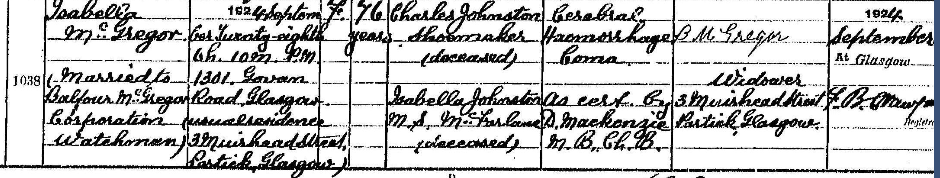 1038
Isabella
McGregor
(Married to
Balfour McGregor
Corporation
Watchman)
1924 Septem
ber Twenty-eighth
6h. 10m. P.M.
1301, Govan
Road, Glasgow
(usual residence
3 Muirhead Street,
Partick, Glasgow)
F.
76
years
Charles Johnston
Shoemaker
(deceased)
Isabella Johnston
M.S. McFarlane
(deceased)
Cerebral
Haemorrhage
Coma
As cert. by
D. Mackenzie
M.B. Ch.B.
B McGregor
Widower
3 Muirhead Street
Partick, Glasgow.
1924
September
At Glasgow